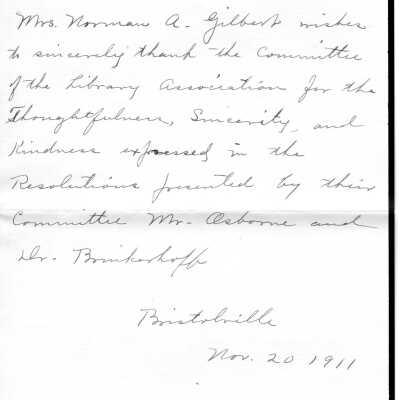 Mrs. Norman A. Gilbert wishes
to sincerely thank the Committee
of the Library Association for the
Thoughtfulness, Sincerity, and
Kindness expressed in the
Resolutions presented by their
Committee Mr. Osborne and
Dr. Brinkerhoff
Bristolville
Nov. 20 1911